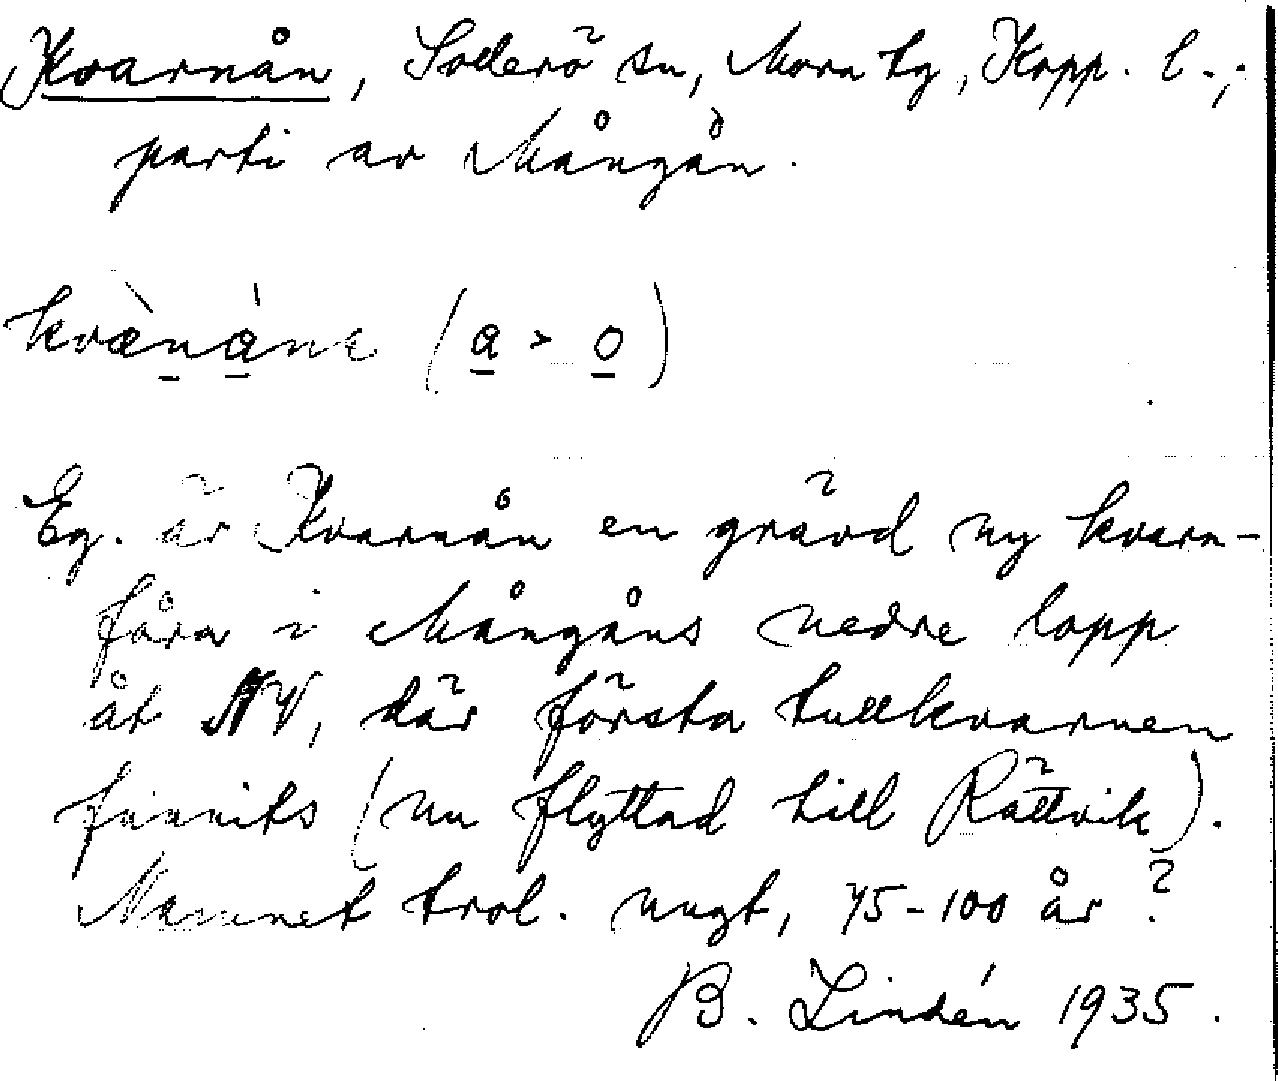 Kvarnån, Sollerö sn, Mora tg, Kopp. l.;
parti av Mångån.
kvæ̀nàne (a > o)
Eg. är Kvarnån en grävd ny kvarn-
fåra i Mångåns nedre lopp
åt NV, där första tullkvarnen
funnits (nu flyttad till Rättvik).
Namnet trol. ungt, 75-100 år?
B. Lindén 1935.